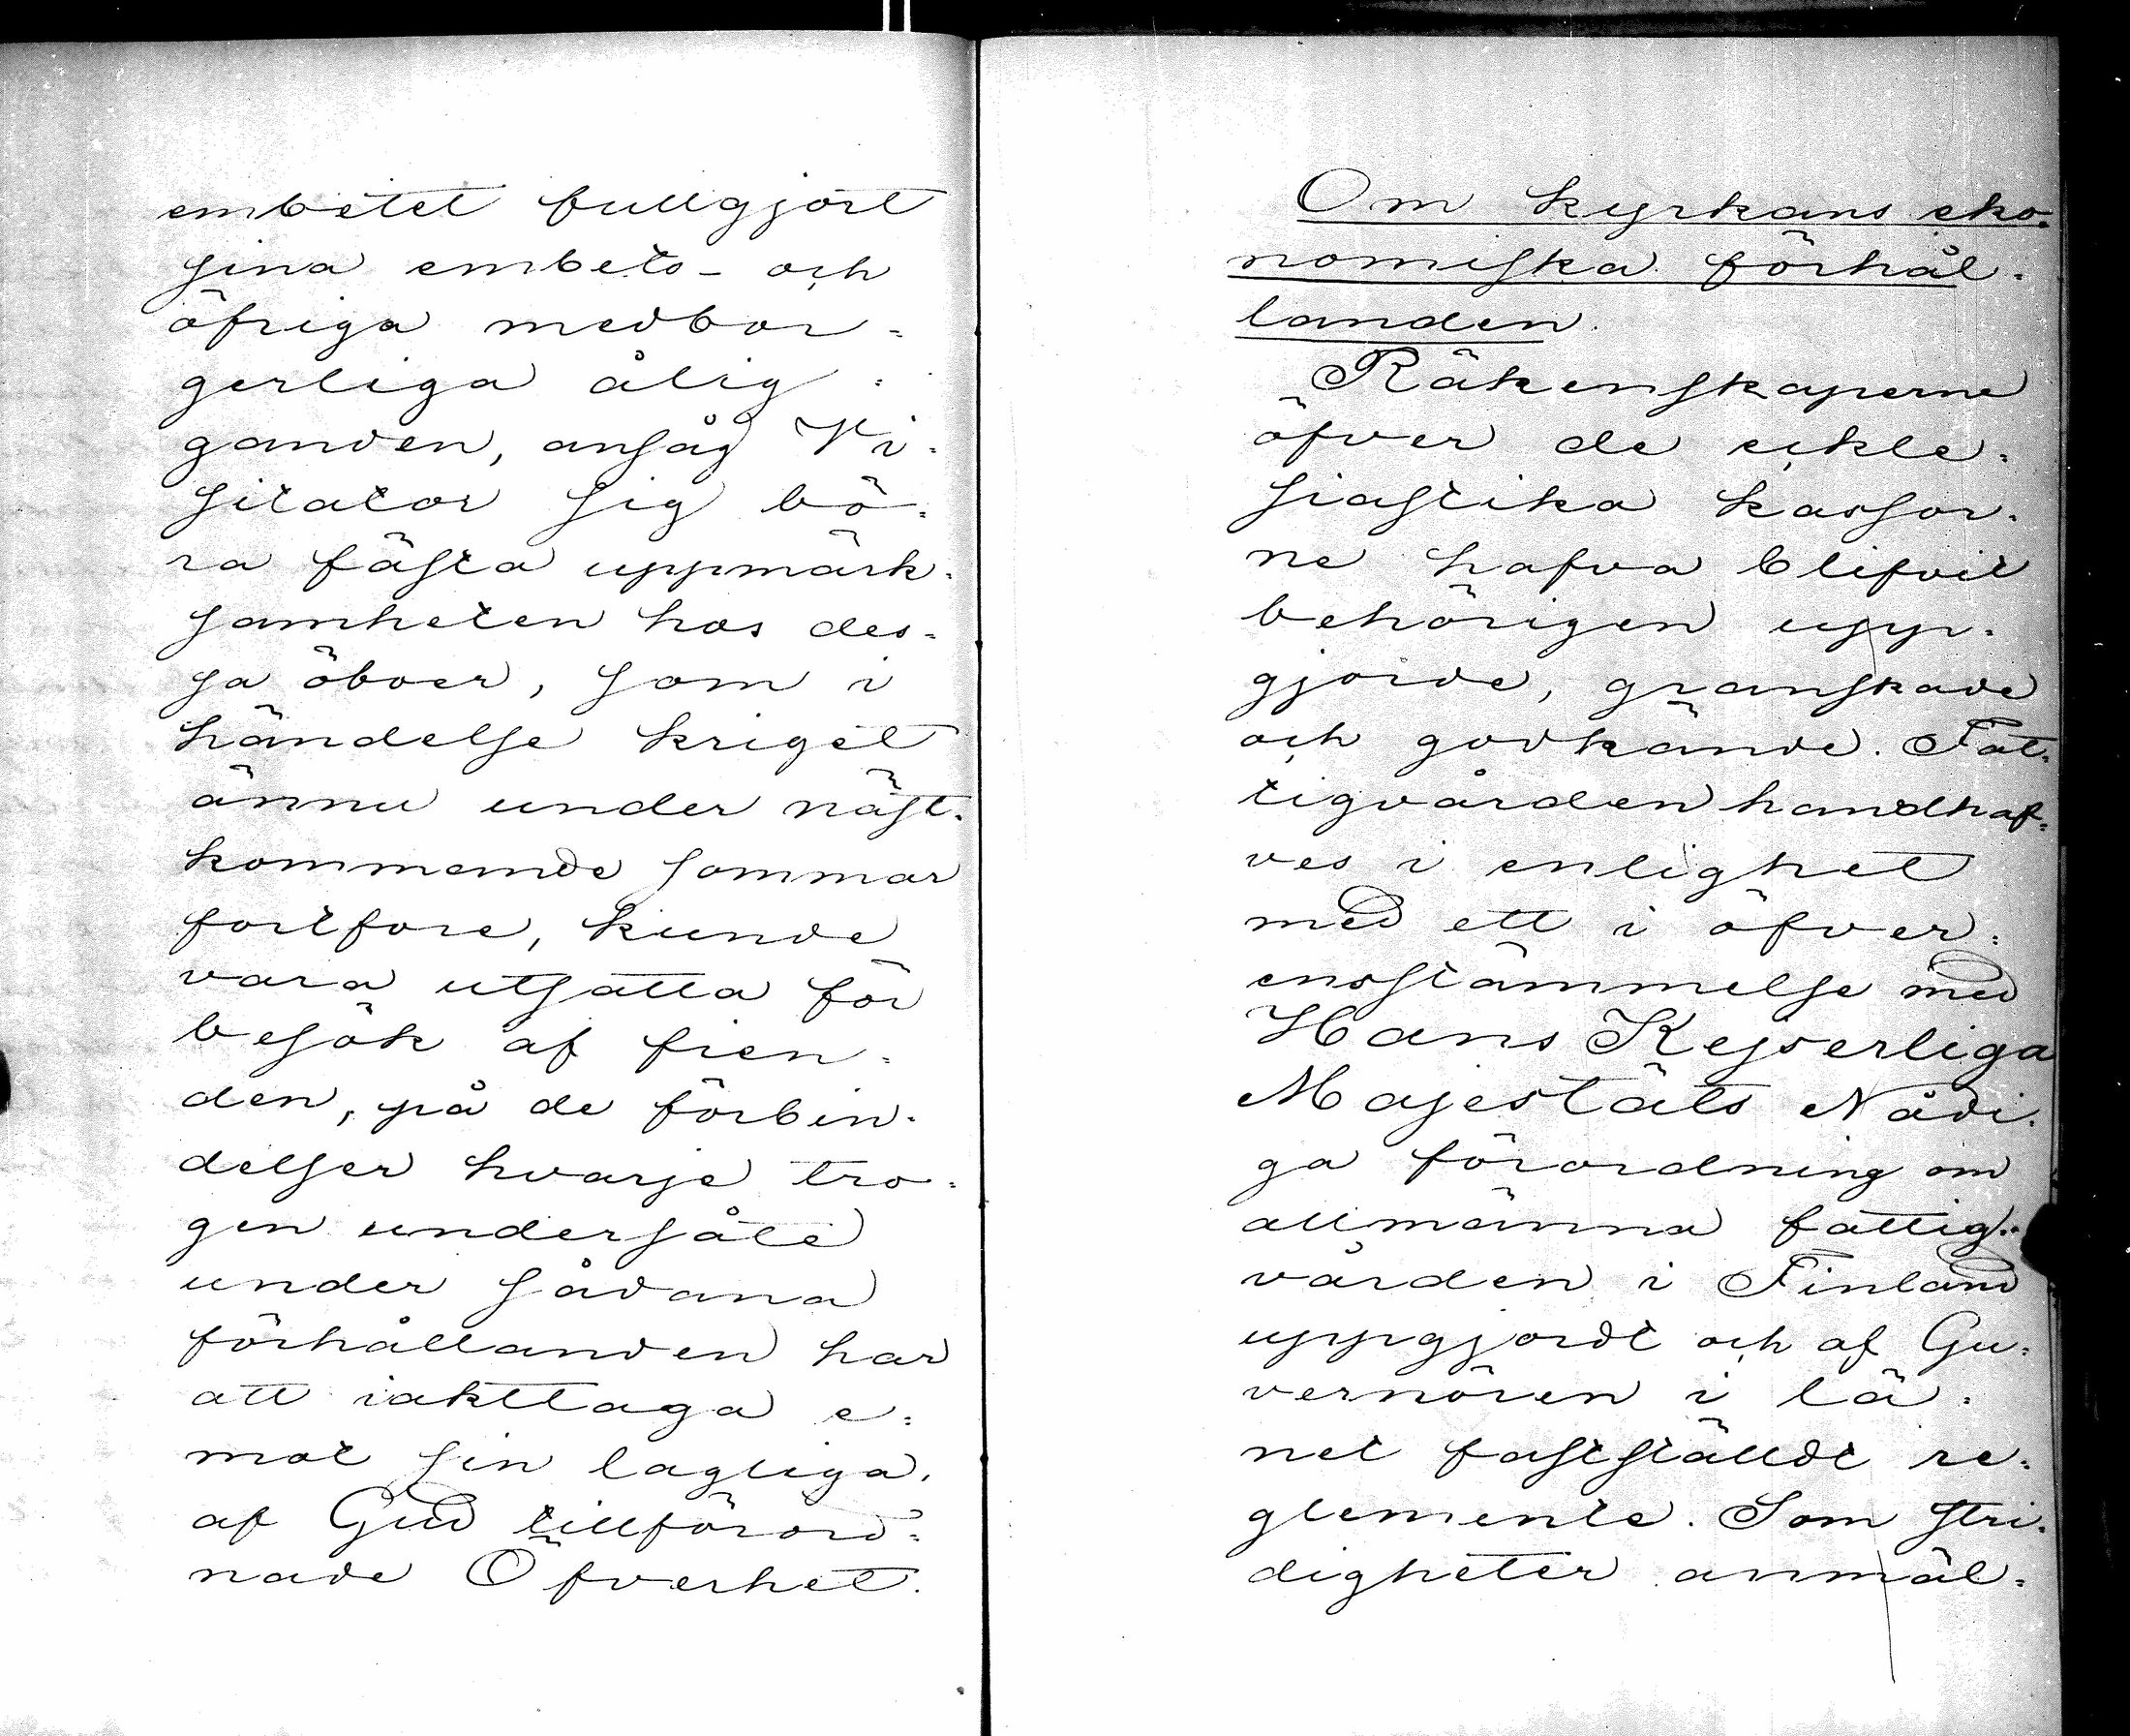 embetet fullgjort
sina embets- och
öfriga medbor=
gerliga ålig=
ganden, ansåg Vi=
sitator sig bö=
ra fästa uppmärk=
samheten hos des=
sa öboer, som i
händelse kriget
ännu under näst=
kommande sommar
fortfore, kunde
vara utsatta för
besök af fien=
den, på de förbin=
delser hvarje tro=
gen undersåte
under sådana
förhållanden har
att iakttaga e=
mot sin lagliga,
af Gud tillförord=
nade Öfverhet.
Om kyrkans eko=
nomiska förhål=
landen.
Räkenskaperne
öfver de eckle=
siastika kassor=
ne hafva blifvit
behörigen upp=
gjorde, granskade
och godkände. Fat=
tigvården handhaf=
ves i enlighet
med ett i öfver=
ensstämmelse med
Hans Kejserliga
Majestäts Nådi=
ga förordning om
allmänna fattig=
vården i Finland
uppgjordt och af Gu=
vernören i lä=
net fastställdt re=
glemente. Som stri=
digheter anmäl=